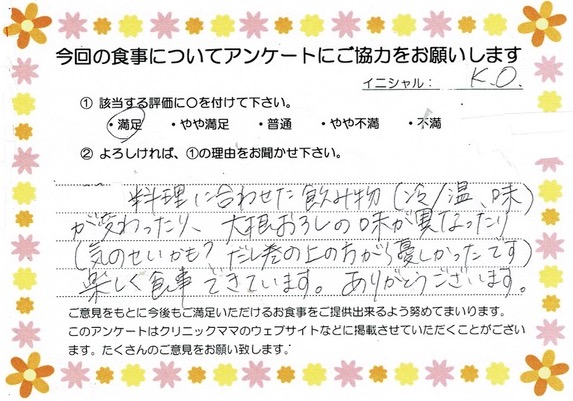 今回の食事についてアンケートにご協力をお願いします
イニシャル: K.O.
① 該当する評価に○を付けて下さい。
・満足 ・やや満足 ・普通 ・やや不満 ・不満
② よろしければ、①の理由をお聞かせ下さい。
料理に合わせた飲み物(冷/温、味)
が変わったり、大根おろしの味が異なったり
(気のせいかも?だし巻の上の方が優しかったです)
楽しく食事できています。ありがとうございます。
ご意見をもとに今後もご満足いただけるお食事をご提供出来るよう努めてまいります。
このアンケートはクリニックママのウェブサイトなどに掲載させていただくことがござい
ます。たくさんのご意見をお願い致します。